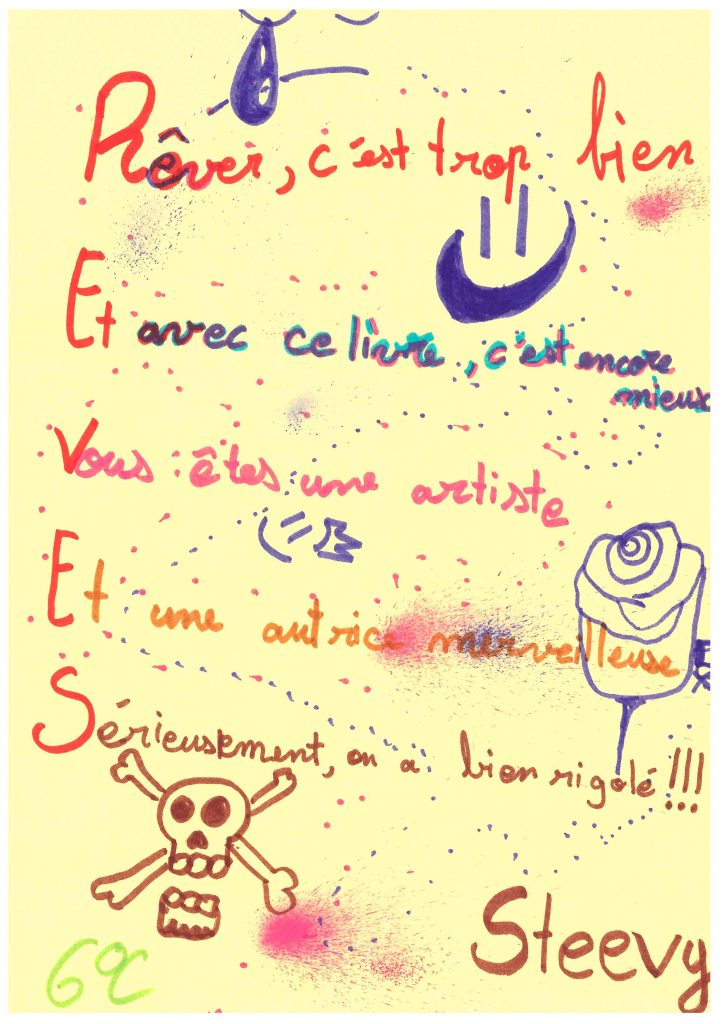 Rêver, c'est trop bien
Et avec ce livre, c'est encore
mieux
Vous êtes une artiste
Et une autrice merveilleuse
Sérieusement, on a bien rigolé !!!
Steevy